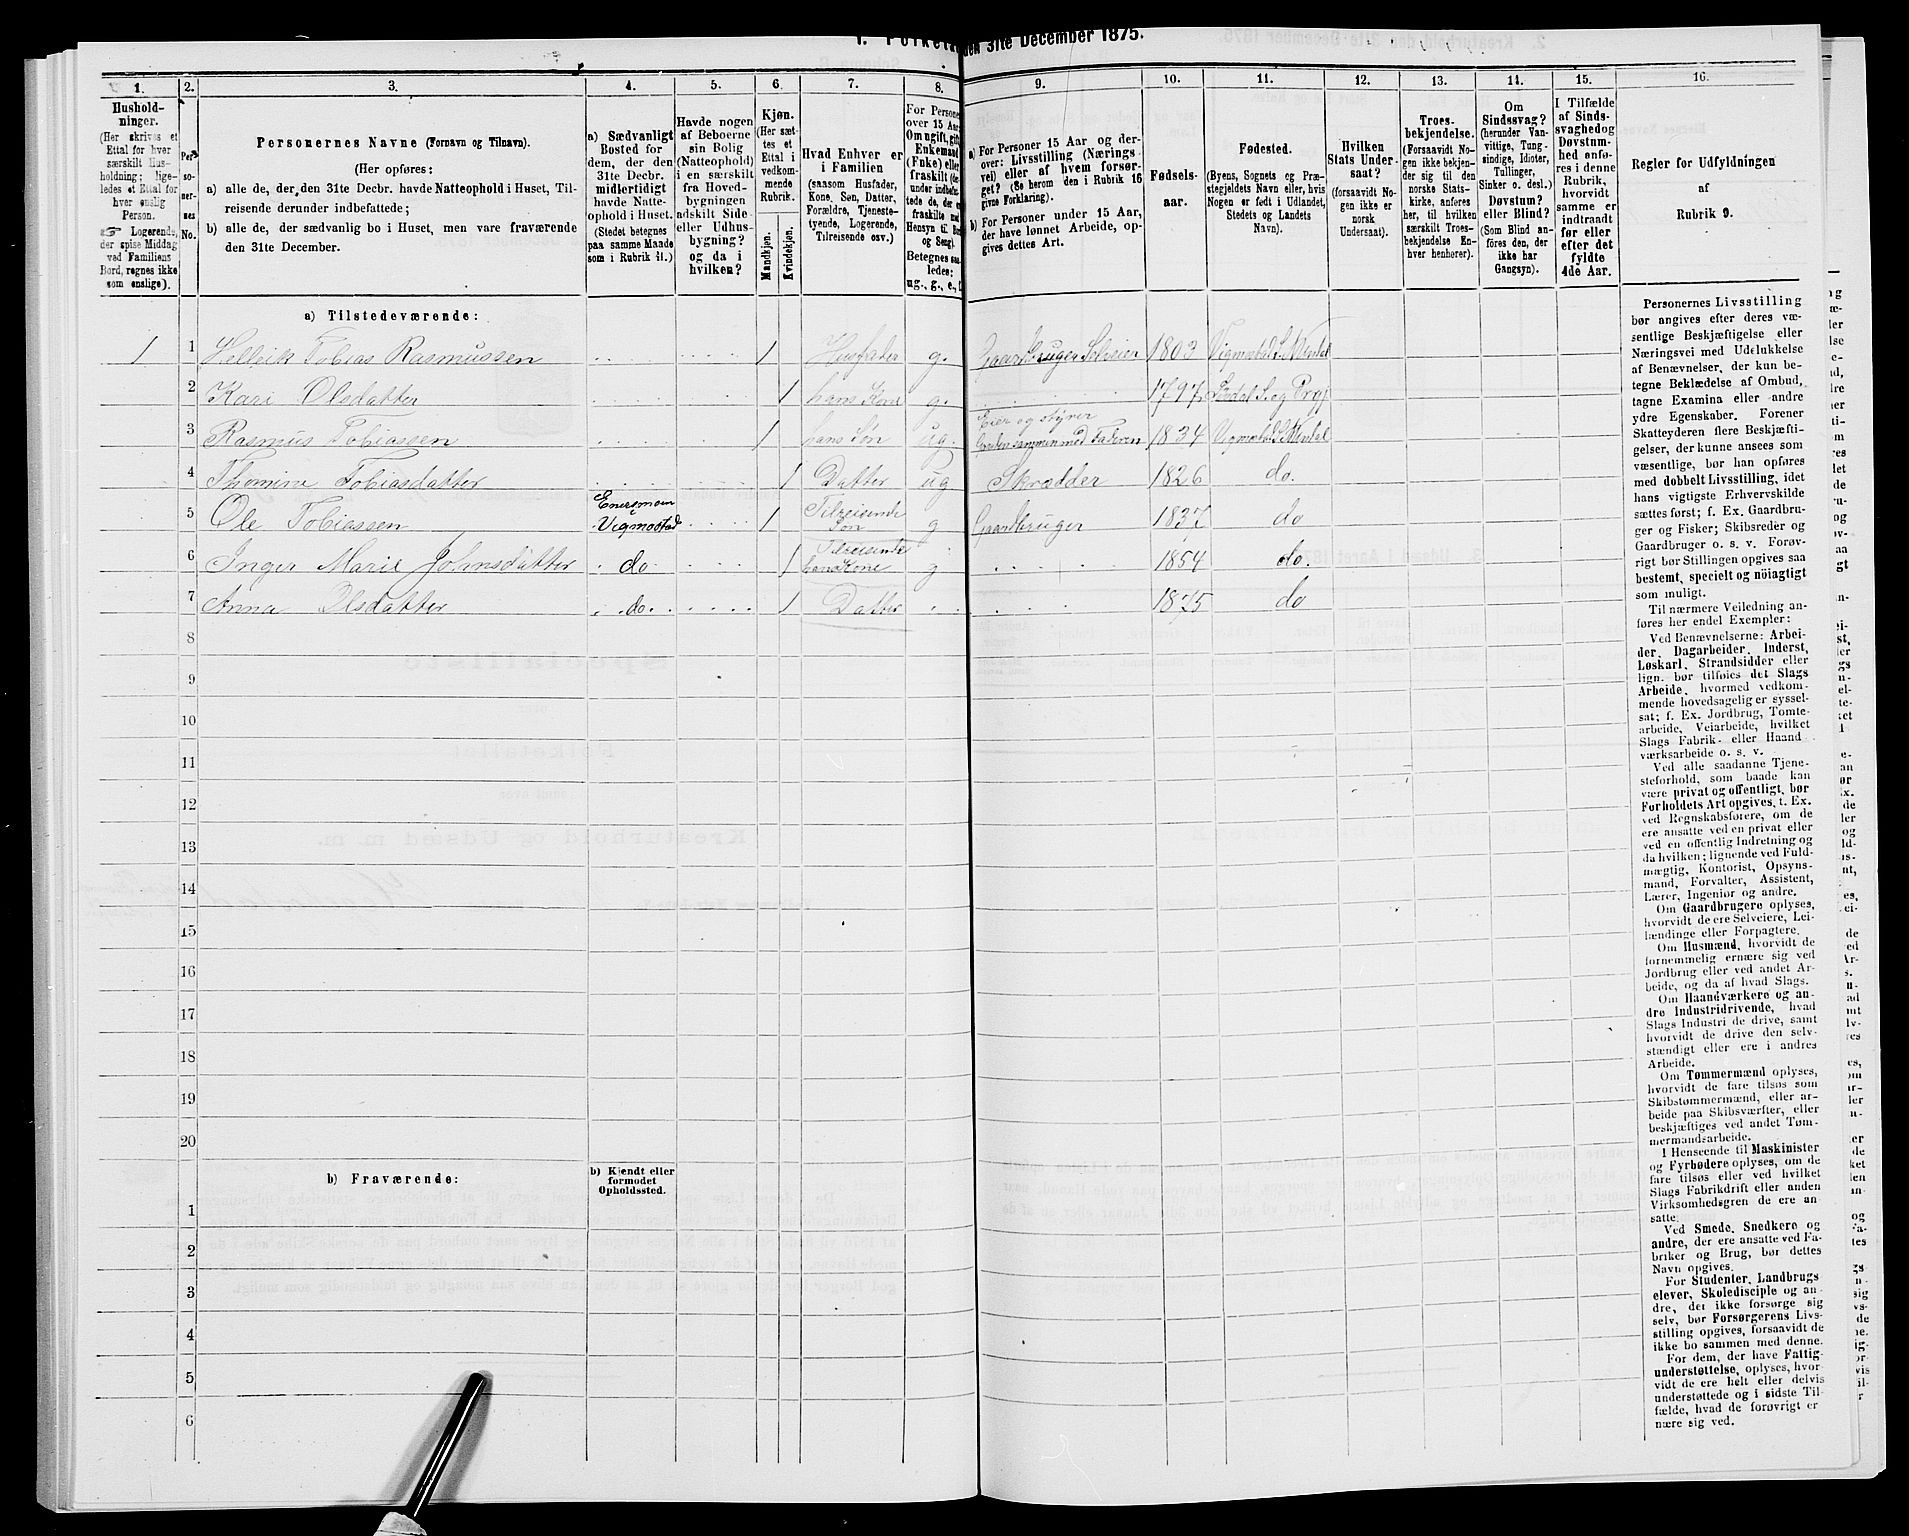 den 31te December 1875.
1.
Hushold-
ninger.
(Her skrives et
Ettal for hver
særskilt Hus-
holdning; lige-
ledes et Ettal for
hver enslig
Person.
Logerende,
der spise Middag
ved Familiens
Bord, regnes ikke
som enslige).
2.
Per-
so-
ner-
nes
No.
3.
Personernes Navne (Fornavn og Tilnavn).
(Her opføres:
a) alle de, der den 31te Decbr. havde Natteophold i Huset, Til-
reisende derunder indbefattede;
b) alle de, der sædvanlig bo i Huset, men vare fraværende
den 31te December.
4.
a) Sædvanligt
Bosted for
dem, der den
31te Decbr.
midlertidigt
havde Natte-
ophold i Huset.
(Stedet betegnes
paa samme Maade
som i Rubrik 11.)
5.
Havde nogen
af Beboerne
sin Bolig
(Natteophold)
i en særskilt
fra Hoved-
bygningen
adskilt Side-
eller Udhus-
bygning?
og da i
hvilken?
6.
Kjøn.
(Her sæt-
tes et
Ettal i
vedkom-
mende
Rubrik.
Mandkjøn.
Kvindekjøn.
7.
Hvad Enhver er
i Familien
(saasom Husfader,
Kone, Søn, Datter,
Forældre, Tjeneste-
tyende, Logerende,
Tilreisende osv.)
8.
For Person
over 15 Aar
Om ugift, gift
Enkemand
(Enke) eller
fraskilt
Betegnes saa-
ledes:
ug., g., e.,
9.
a) For Personer 15 Aar og der-
over: Livsstilling (Nærings-
vei) eller af hvem forsør-
get? (Se herom den i Rubrik 16
givne Forklaring).
b) For Personer under 15 Aar,
der have lønnet Arbeide, op-
gives dettes Art.
10.
Fødsels-
aar.
11.
Fødested.
(Byens, Sognets og Præ-
stegjeldets Navn eller, hvis
Nogen er født i Udlandet,
Stedets og Landets
Navn).
12.
Hvilken
Stats Under-
saat?
(forsaavidt No-
gen ikke er
norsk
Undersaat).
13.
Troes-
bekjendelse.
(Forsaavidt No-
gen ikke bekjen-
der sig til den
norske Stats-
kirke, anføres
her, til hvilken
særskilt Troes-
bekjendelse En-
hver henhører).
14.
Om
Sindssvag?
(herunder Van-
vittige, Tung-
sindige, Idioter,
Tullinger,
Sinker o. desl.)
Døvstum?
eller Blind?
(Som Blind an-
føres den, der
ikke har
Gangsyn).
15.
I Tilfælde
af Sinds-
svaghed og
Døvstum-
hed anfø-
res i denne
Rubrik,
hvorvidt
samme er
indtraadt
før eller
efter det
fyldte
4de Aar.
16.
Regler for Udfyldningen
af
Rubrik 9.
a) Tilstedeværende:
1 1 Helleik Tobias Rasmussen 1 Husfader g. Gaardbruger Selveier 1803 Vigmostad S.
2 Kari Olsdatter 1 hans Kone g. 1797
Eier og styrer
3 Rasmus Tobiassen 1 hans Søn ug. Gaarden sammen med Faderen 1834 Vigmostad S.
4 Thomine Tobiasdatter 1 Datter ug Skrædder 1826 do.
5 Ole Tobiassen Vigmostad 1 Tilreisende Søn g Gaardbruger 1837 do
6 Inger Marie Johnsdatter do 1 Tilreisende hans Kone g 1854 do.
7 Anna Olsdatter do. 1 Datter 1875 do
8
9
10
11
12
13
14
15
16
17
18
19
20
b) Fraværende:
b) Kjendt eller
formodet
Opholdssted.
1
2
3
4
5
6
Personernes Livsstilling
bør angives efter deres væ-
sentlige Beskjæftigelse eller
Næringsvei med Udelukkelse
af Benævnelser, der kun be-
tegne Beklædelse af Ombud,
tagne Examina eller andre
ydre Egenskaber. Forener
Skatteyderen flere Beskjæfti-
gelser, der kunne ansees som
væsentlige, bør han opføres
med dobbelt Livsstilling, idet
hans vigtigste Erhvervskilde
sættes først; f. Ex. Gaardbru-
ger og Fisker; Skibsreder og
Gaardbruger o. s. v. Forøv-
rigt bør Stillingen opgives saa
bestemt, specielt og nøiagtigt
som muligt.
Til nærmere Veiledning an-
føres her endel Exempler:
Ved Benævnelserne: Arbei-
der, Dagarbeider, Inderst,
Løskarl, Strandsidder eller
lign. bør tilføies det Slags
Arbeide, hvormed vedkom-
mende hovedsagelig er syssel-
sat; f. Ex. Jordbrug, Tomte-
arbeide, Veiarbeide, hvilket
Slags Fabrik- eller Haand
værksarbeide o. s. v.
Ved alle saadanne Tjene-
steforhold, som baade kan
være privat og offentligt, bør
Forholdets Art opgives, t. Ex.
ved Regnskabsførere, om de
ere ansatte ved en privat eller
ved en offentlig Indretning og
da hvilken; lignende ved Fuld-
mægtig, Kontorist, Opsyns-
mand, Forvalter, Assistent,
Lærer, Ingeniør og andre.
Om Gaardbrugere oplyses,
hvorvidt de ere Selveiere, Lei-
lændinge eller Forpagtere.
Om Husmænd, hvorvidt de
fornemmelig ernære sig ved
Jordbrug eller ved andet Ar-
beide, og da af hvad Slags.
Om Haandværkere og an-
dre Industridrivende, hvad
Slags Industri de drive, samt
hvorvidt de drive den selv-
stændigt eller ere i andres
Arbeide.
Om Tømmermænd oplyses,
hvorvidt de fare tilsøs som
Skibstømmermænd, eller ar-
beide paa Skibsværfter, eller
beskjæftiges ved andet Tøm-
mermandsarbeide.
I Henseende til Maskinister
og Fyrbødere oplyses, om de
fare tilsøs eller ved hvilket
Slags Fabrikdrift eller anden
Virksomhedsgren de ere an-
satte.
Ved Smede, Snedkere og
andre, der ere ansatte ved Fa-
briker og Brug, bør dettes
Navn opgives.
For Studenter, Landbrugs
elever, Skoledisciple og an-
dre, der ikke forsørge sig
selv, bør Forsørgerens Livs-
stilling opgives, forsaavidt de
ikke bo sammen med denne.
For dem, der have Fattig-
understøttelse, oplyses, hvor-
vidt de ere helt eller delvis
understøttede og i sidste Til-
fælde, hvad de forøvrigt er
nære sig ved.